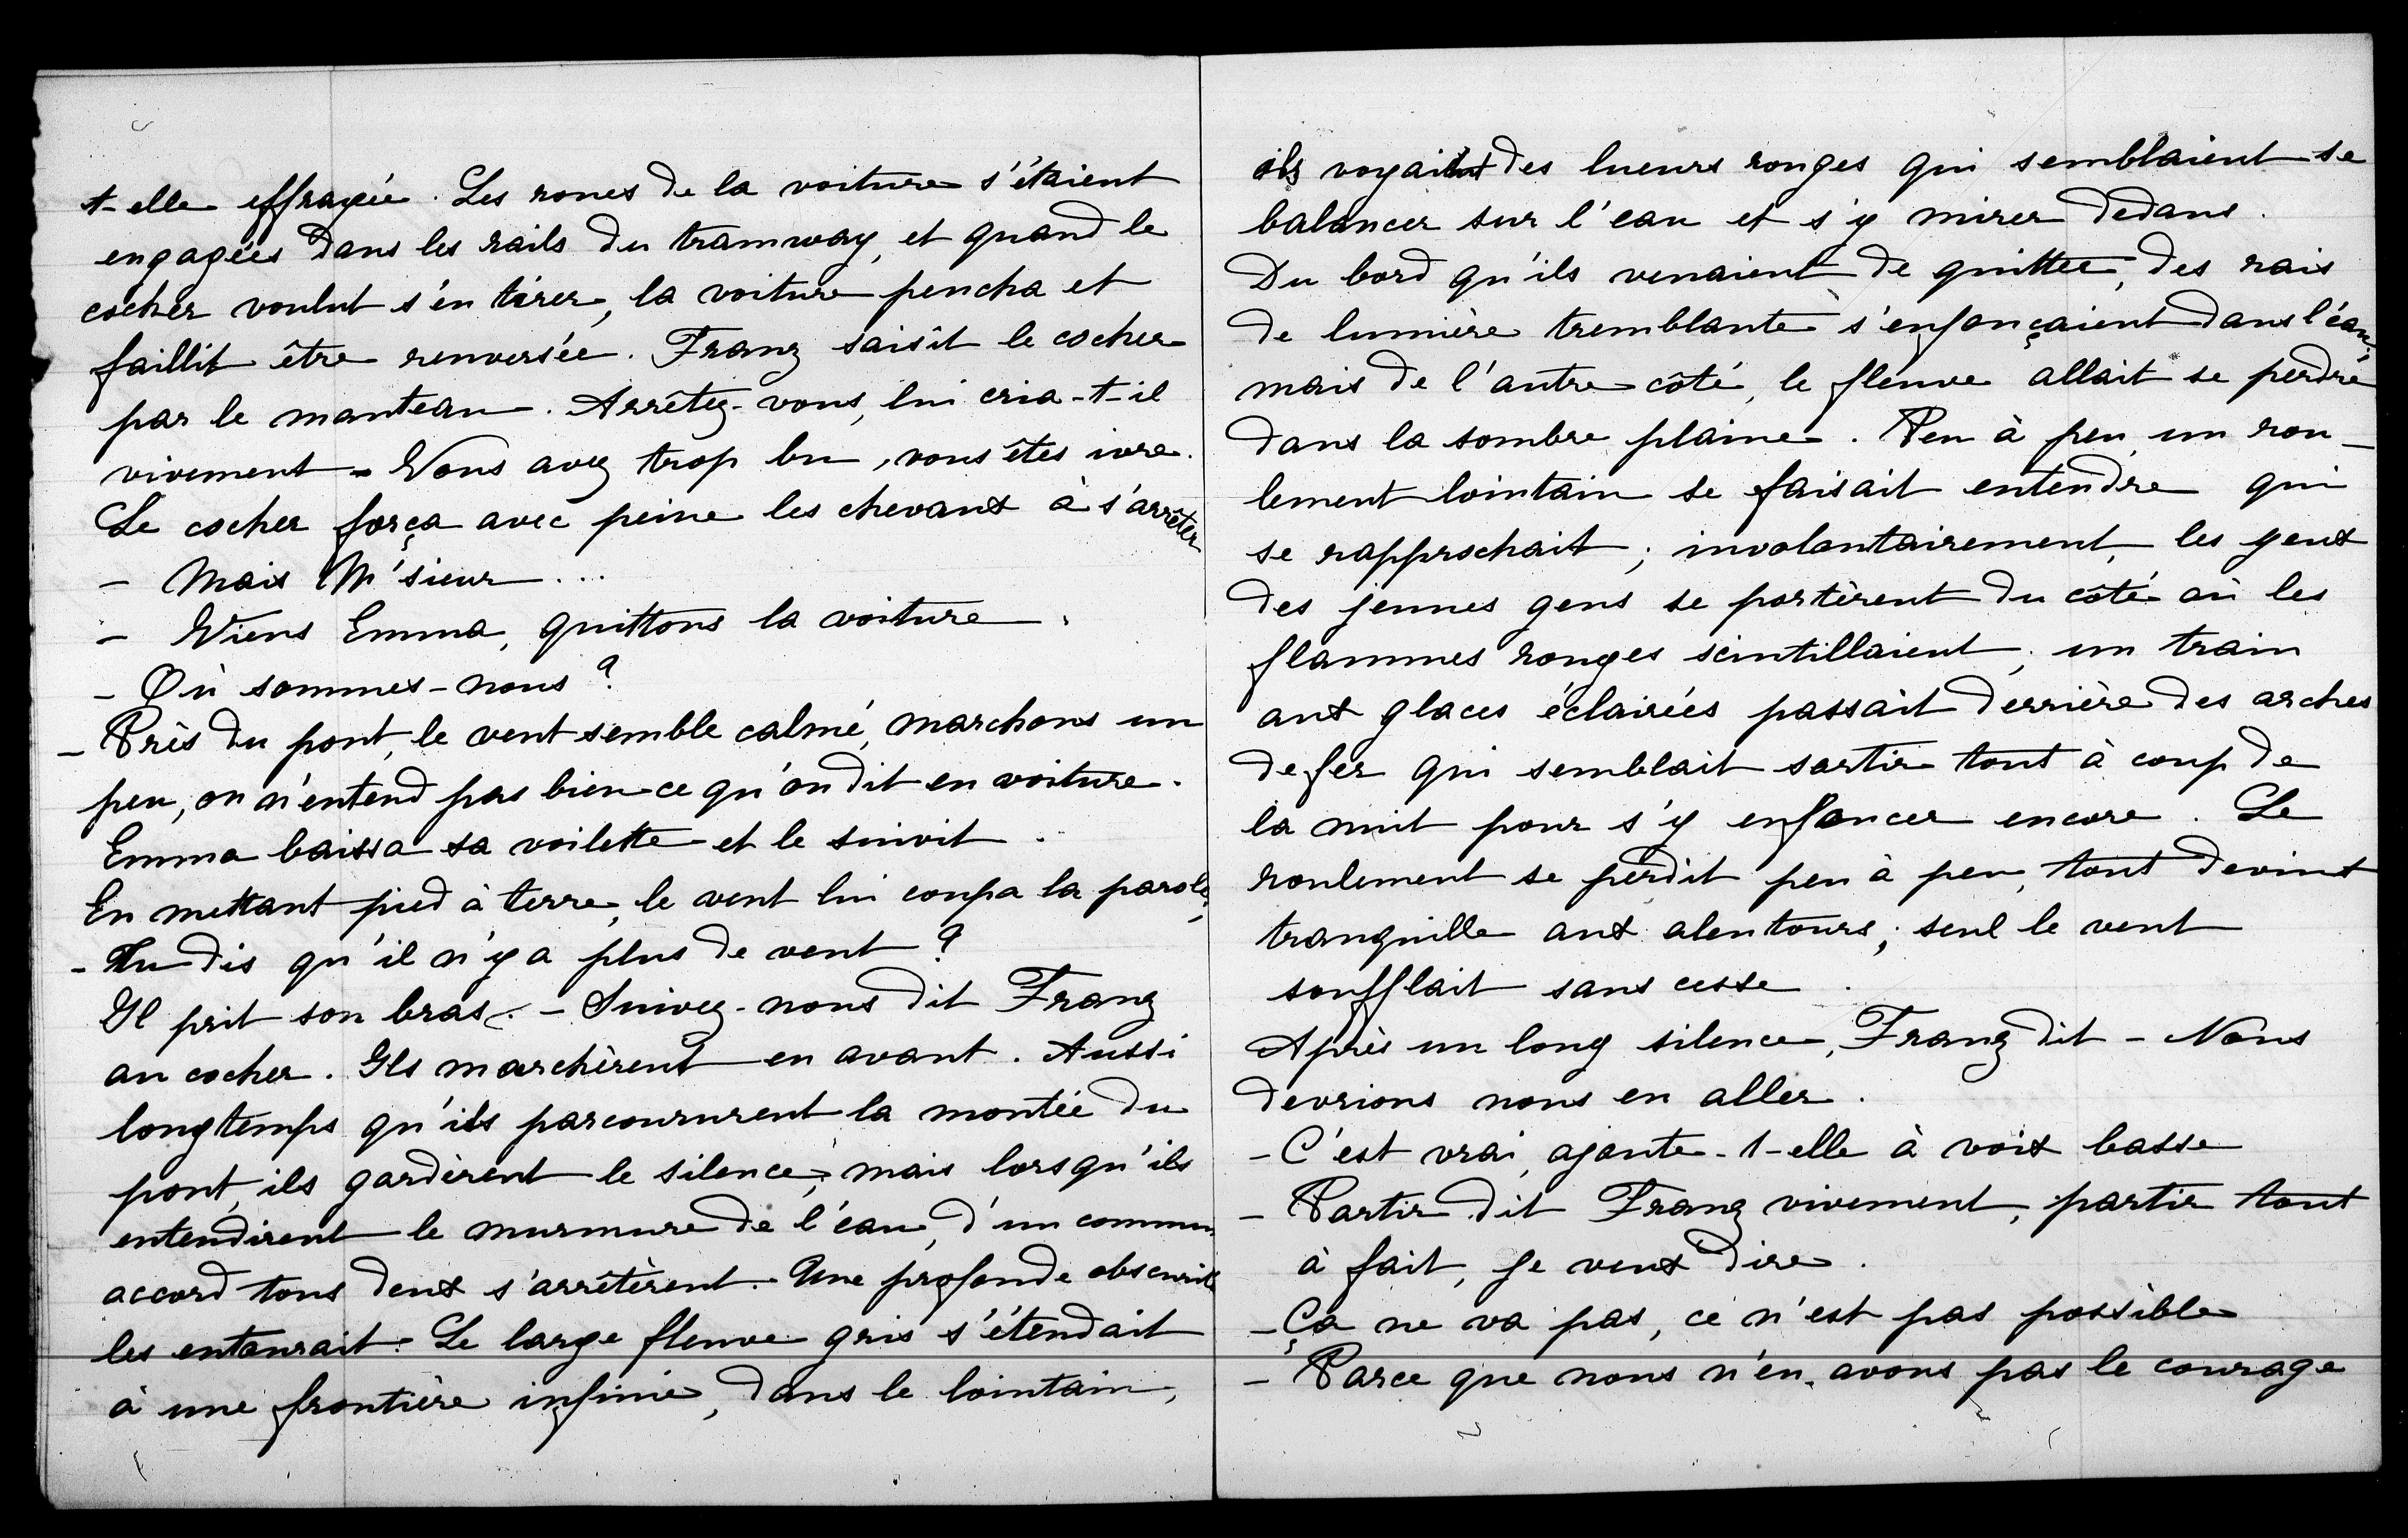 t-elle effrayée. Les roues de la voiture s'étaient
engagées dans les rails du tramway, et quand le
cocher voulut s'en tirer, la voiture pencha et
faillit être renversée. Franz saisit le cocher
par le manteau. Arrêtez-vous, lui cria-t-il
vivement - Vous avez trop bu, vous êtes ivre.
Le cocher força avec peine les chevaux à s'arrêter
- Mais M'sieur ...
- Viens Emma, quittons la voiture.
- Où sommes-nous ?
- Près du pont, le vent semble calmé, marchons un
peu, on n'entend pas bien ce qu'on dit en voiture.
Emma baissa sa voilette et le suivit.
En mettant pied à terre, le vent lui coupa la parole,
- Tu dis qu'il n'y a plus de vent ?
Il prit son bras. - Suivez-nous dit Franz
au cocher. Ils marchèrent en avant. Aussi
longtemps qu'ils parcoururent la montée du
pont, ils gardèrent le silence; mais lorsqu'ils
entendirent le murmure de l'eau, d'un commun
accord tous deux s'arrêtèrent. Une profonde obscurité
les entourait. Le large fleuve gris s'étendait
à une frontière infinie, dans le lointain,
ils voyaient des lueurs rouges qui semblaient se
balancer sur l'eau et s'y mirer dedans.
Du bord qu'ils venaient de quitter, des rais
de lumière tremblante s'enfonçaient dans l'eau;
mais de l'autre côté, le fleuve allait se perdre
dans la sombre plaine. Peu à peu, un rou-
lement lointain se faisait entendre qui
se rapprochait; involontairement, les yeux
des jeunes gens se portèrent du côté où les
flammes rouges scintillaient; un train
aux glaces éclairées passait derrière des arches
de fer qui semblait sortir tout à coup de
la nuit pour s'y enfoncer encore. Le
roulement se perdit peu à peu, tout devint
tranquille aux alentours; seul le vent
soufflait sans cesse.
Après un long silence, Franz dit - Nous
devrions nous en aller.
- C'est vrai, ajoute-t-elle à voix basse
- Partir dit Franz vivement, partir tout
à fait, je veux dire.
- Ça ne va pas, ce n'est pas possible
- Parce que nous n'en avons pas le courage